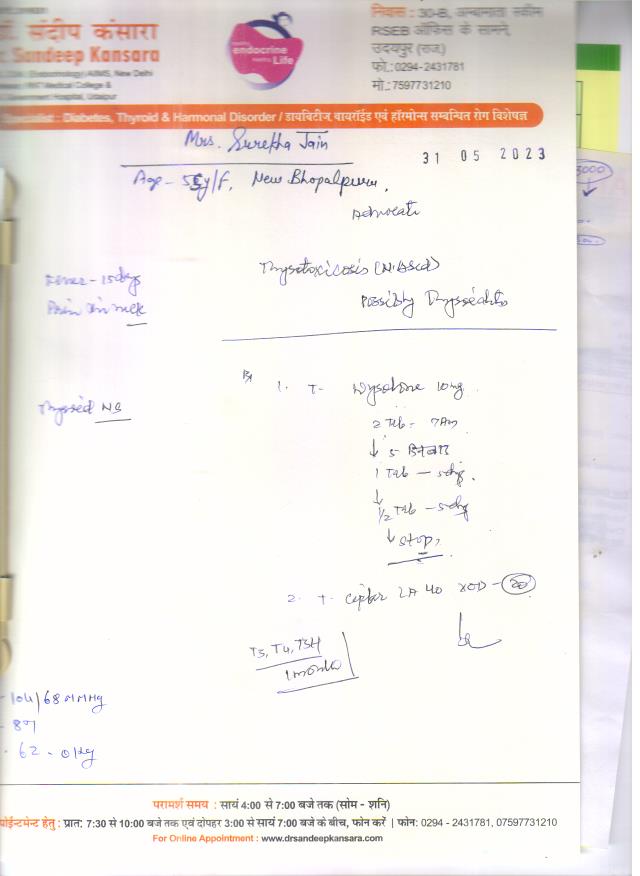 डॉ. संदीप कंसारा
Dr. Sandeep Kansara
(Endocrinology) AIIMS, New Delhi
RNT Medical College &
Hospital, Udaipur
healthy
endocrine
healthy Life
निवास : 30-B, अम्बामाता स्कीम
RSEB ऑफिस के सामने,
उदयपुर (राज.)
फो.:0294-2431781
मो.:7597731210
Specialist : Diabetes, Thyroid & Harmonal Disorder / डायबिटीज, थायरॉईड एवं हॉरमोन्स सम्बन्धित रोग विशेषज्ञ
Mrs. Surekha Jain
31 05 2023
Age - 55y/F, New Bhopalpura,
Advocate
3000
Fever - 15 days
Pain in neck
Thyrotoxicosis
Possibly Thyroiditis
Thyroid NS
Rx
1. T- Wysolone 10mg
2 Tab - 7AM
↓ 5 दिन बाद
1 Tab - 5 day
↓
1/2 Tab - 5 day
↓ Stop,
2. T- LA 40 XOD - 20
T3, T4, TSH
1 month
- 104/68 mmHg
- 89
- 62 - 0 kg
परामर्श समय : सायं 4:00 से 7:00 बजे तक (सोम - शनि)
अपॉईन्टमेन्ट हेतु : प्रात: 7:30 से 10:00 बजे तक एवं दोपहर 3:00 से सायं 7:00 बजे के बीच, फोन करें | फोन: 0294 - 2431781, 07597731210
For Online Appointment : www.drsandeepkansara.com